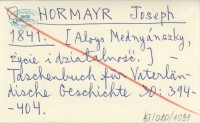 HORMAYR Joseph
1841. [Aloys Mednyánszky,
życie i działalność.] —
Taschenbuch für Vaterlän-
dische Geschichte 30: 394-
-404.